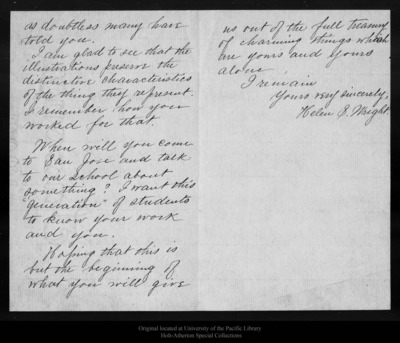 as doubtless many have
told you.
I am glad to see that the
illustrations preserve the
distinctive characteristics
of the thing they represent.
I remember how you
worked for that.
When will you come
to San Jose and talk
to our school about
something? I want this
"generation" of students
to know your work
and you.
Hoping that this is
but the beginning of
what you will give
us out of the full treasury
of charming things which
are yours and yours
alone
I remain
Yours very sincerely,
Helen S. Wright.
Original located at University of the Pacific Library
Holt-Atherton Special Collections